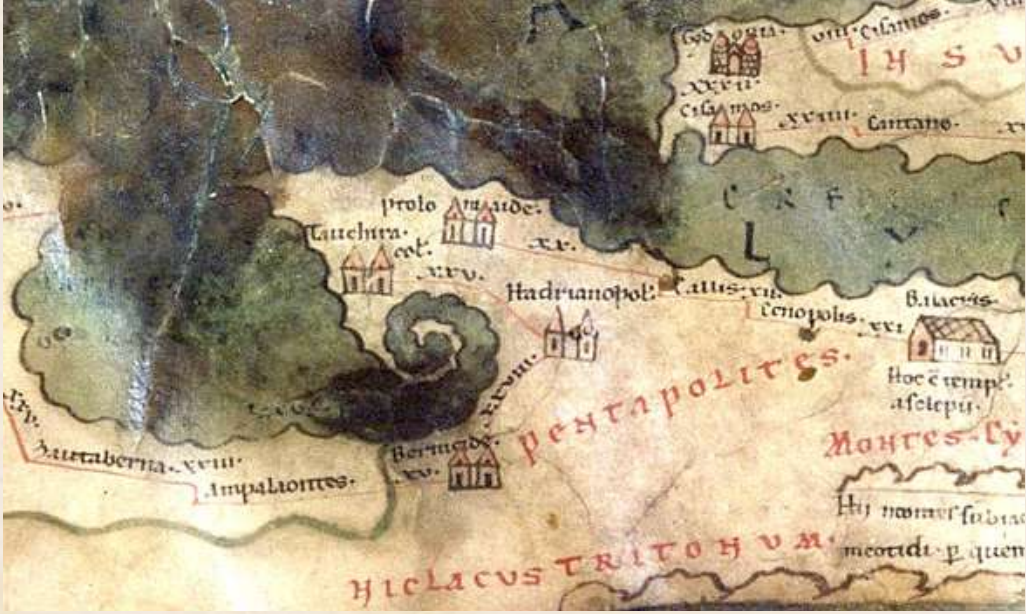 viii. Cisamos.
IN S V
XXXII
Cisamos.
xxviiii.
Cantano.
C R E
L V
ptolomaide.
Tauchira.
col.
xx.
xxv.
Hadrianopol.
Callis. xii.
Cenopolis. xxi
Balacris.
Hoc ē templ.
asclepii.
pentapolites.
Montes. Cy
xxviii.
xxv.
Zautaberna. xviii.
Ampalaontes.
Bernicide.
xv.
Hii montes subiac
meotidi. p quem
HIC LACVS TRITONVM.